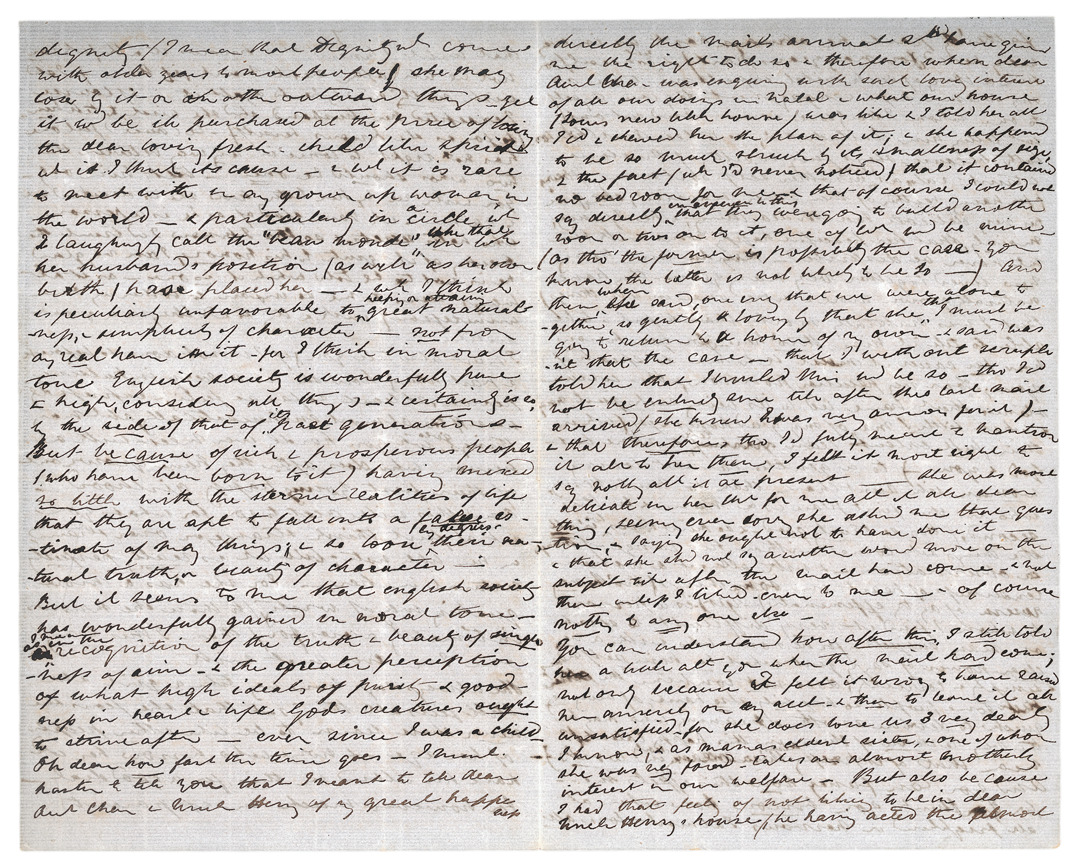 dignity (I mean that Dignity wh. comes
with older years to most people) she may
lose by it or in other outward things - yet
it wd be ill purchased at the price of losing
the dear loving fresh & child like spirit
wh it I think its cause - & wh it is rare
to meet with in any grown up woman, in
the world - & particularly in a circle, wh
I laughingly call the "beau monde",
her husband's position (as well as her own
birth) have placed her - & wh I think
is peculiarly unfavorable to keeping or attaining great natural-
-ness, & simplicity of character - not from
any real harm in it - for I think in moral
tone English society is wonderfully pure
& high, considering all things - & certainly is so,
by the side of that of past generations -
But because of rich & prosperous people
(who have been born to it) having mixed
so little with the sterner realities of life
that they are apt to fall into a false es-
-timate of many things; & so lose by degrees their na-
-tural truth, or beauty of character -
But it seems to me that english society
has wonderfully gained in moral tone -
I mean the recognition of the truth & beauty of single-
-ness of aim - & the greater perception
of what high ideals of purity & good-
ness in heart & life Gods creatures ought
to strive after - ever since I was a child
Oh dear how fast the time goes - I must
hasten to tell you that I meant to tell dear
Aunt Char & Uncle Henry of my great happi-
ness
directly the mails arrival shd have given
me the right to do so & therefore when dear
Aunt Char was enquiring with such loving interest
of all our doings in Natal & what our house
(yours new little house) was like & I told her all
I'd & shewed her the plan of it; & she happened
to be so much struck by its smallness of size,
& the fact (wh I'd never noticed) that it contained
no bedroom for me - & that of course I could not
say directly in answer to this, that they were going to build another
room or two on to it, one of wh wd be mine
(as tho' the former is possibly the case - you
know, the latter is not likely to be so -) and
then, when she said, one day that we were alone to-
-gether, so gently & lovingly that she "that I must be
going to return to a home of my own" - & said was
not that the case - that I without scruple
told her that I wished this wd be so - tho' I'd
not be entirely sure till after this last mail
arrived (she knew I was very anxious for it) -
& that therefore, tho' I'd fully meant to mention
it all to her then, I felt it most right to
say nothg abt it at present - she was most
delicate in her wh for me abt it all dear
thing, seeming even sorry she asked me that ques-
tion, - saying she ought not to have done it -
& that she shd not say another word more on the
subject till after the mail had come - & not
then unless I liked even to me - & of course
nothg to any one else -
You can understand how after this, I still told
her a little abt you when the mail had come;
not only because I felt it wrong to have raised
her anxiety on my acct & then to leave it all
unsatisfied - for she does love us 3 very dearly
I know, & as mamas eldest sister, & one of whom
she was very fond, takes an almost motherly
interest in our welfare - But also because
I had that feelg of not liking to be in dear
Uncle Henry's house, (he having acted the almost